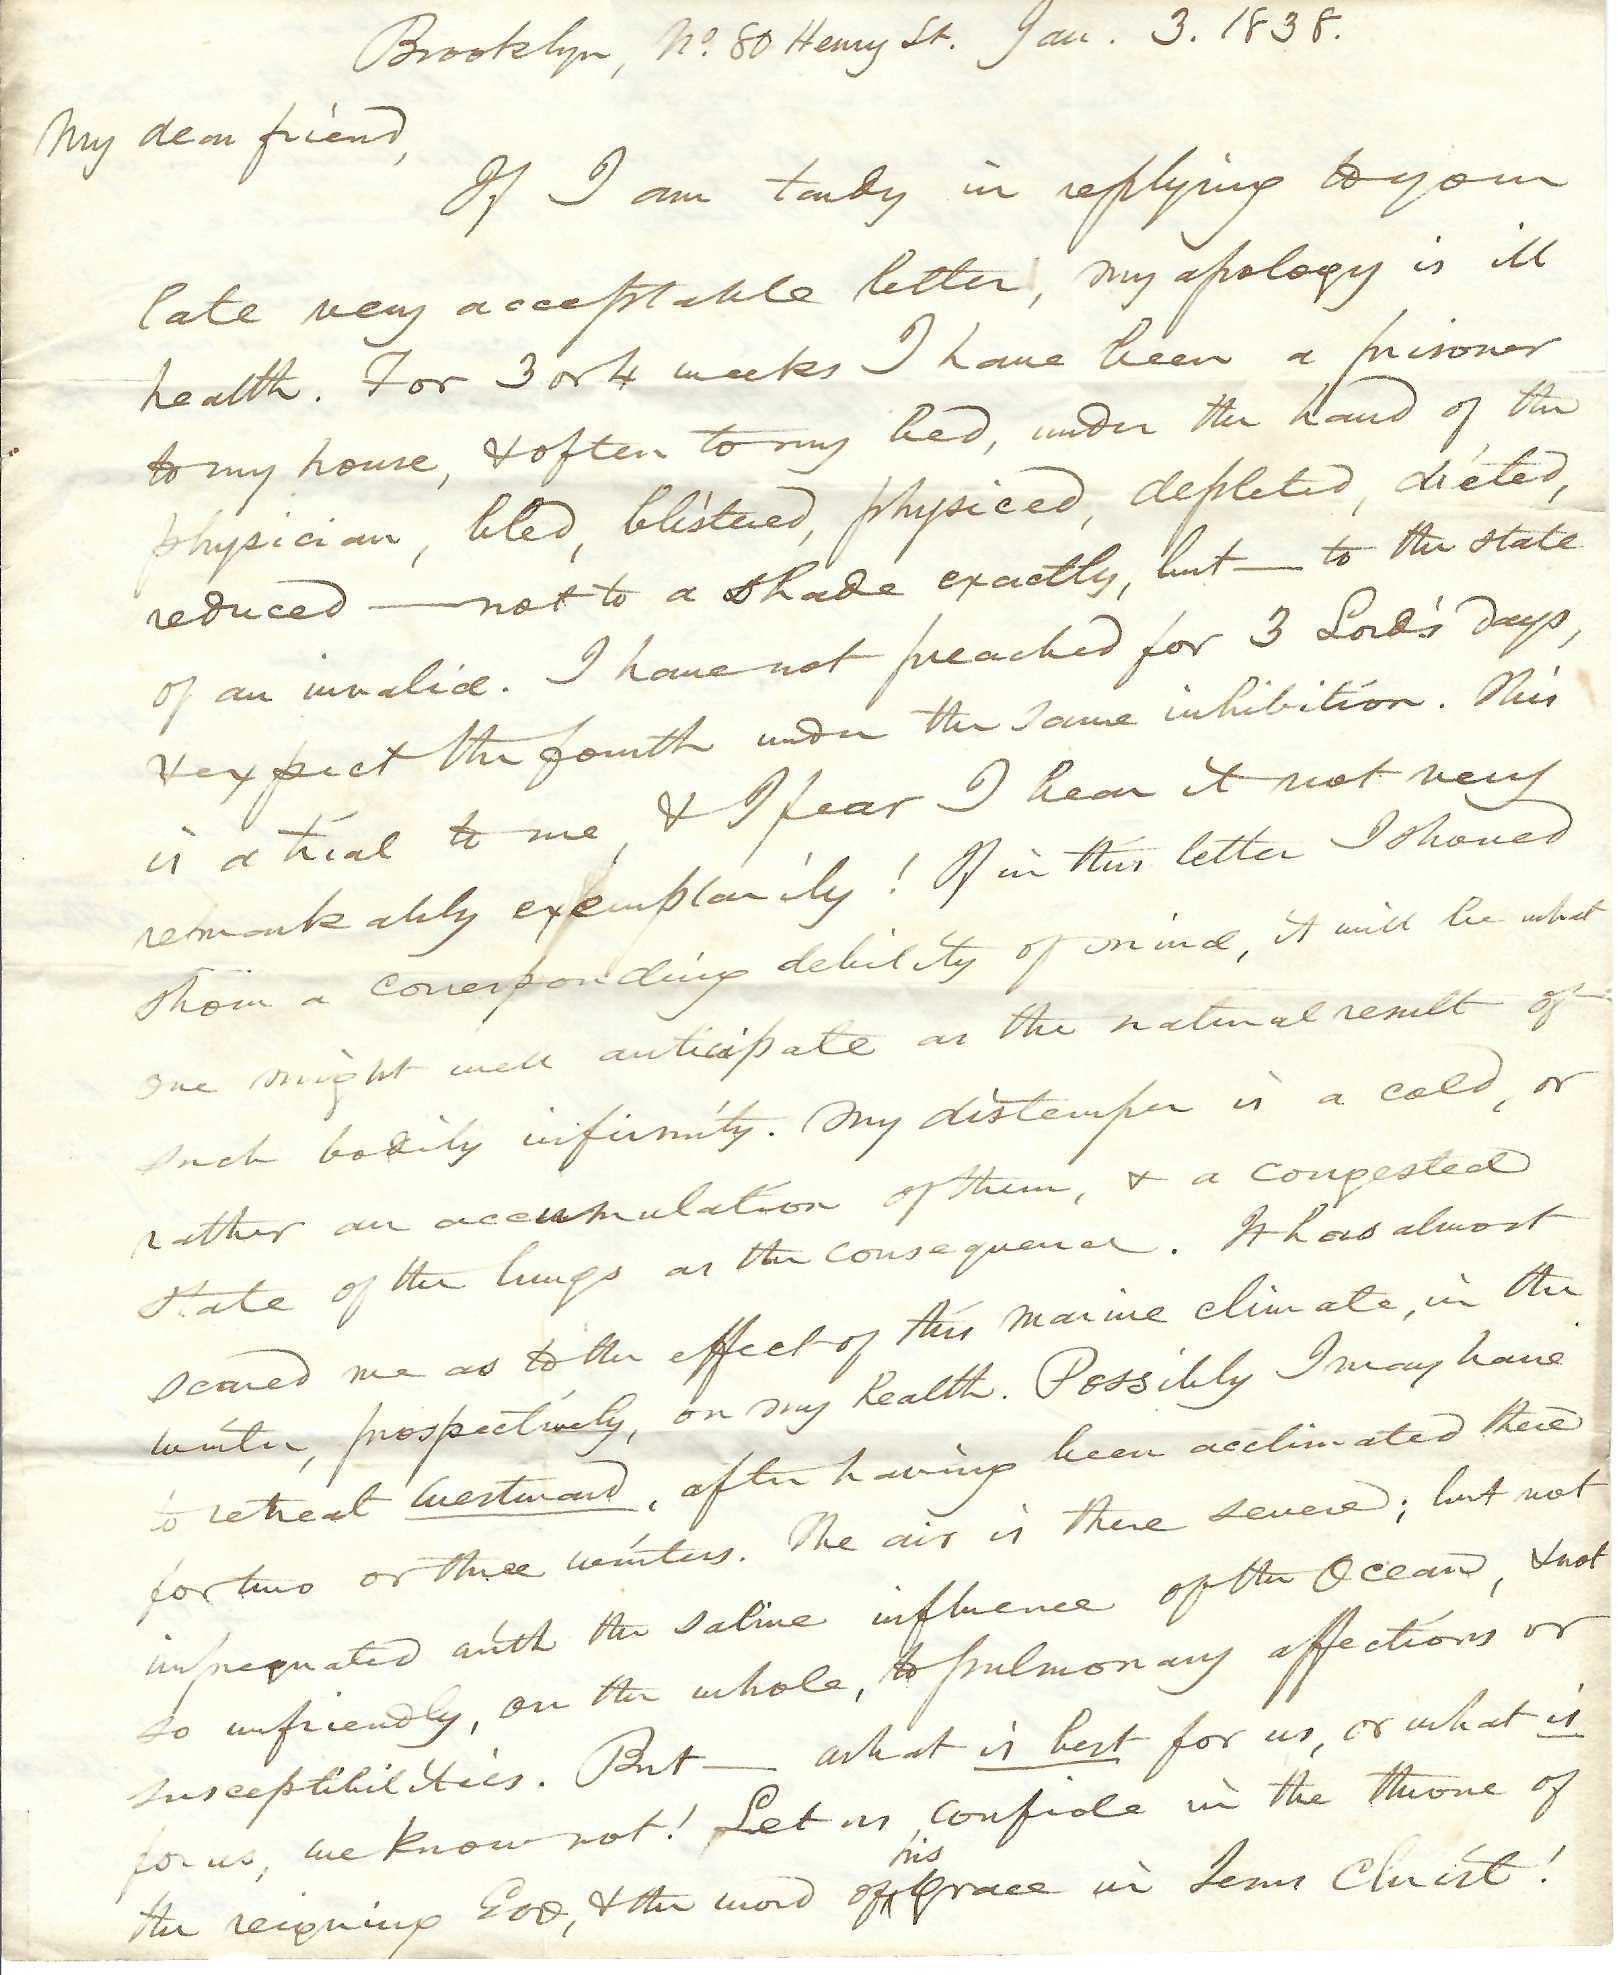 Brooklyn, No. 80 Henry St. Jan. 3. 1838.
My dear friend,
If I am tardy in replying to your
late very acceptable letter, my apology is ill
health. For 3 or 4 weeks I have been a prisoner
to my house, & often to my bed, under the hand of the
physician, bled, blistered, physiced, depleted, dieted,
reduced — not to a shade exactly, but — to the state
of an invalid. I have not preached for 3 Lord's days,
& expect the fourth under the same inhibition. This
is a trial to me, & I fear I bear it not very
remarkably exemplarily! If in this letter I should
show a corresponding debility of mind, it will be what
one might well anticipate as the natural result of
such bodily infirmity. My distemper is a cold, or
rather an accumulation of them, & a congested
state of the lungs as the consequence. It has almost
scared me as to the effect of this marine climate, in the
winter, prospectively, on my health. Possibly I may have
to retreat westward, after having been acclimated there
for two or three winters. The air is there severe; but not
impregnated with the saline influence of the Ocean, & not
so unfriendly, on the whole, to pulmonary affections or
susceptibilities. But — what is best for us, or what is
for us, we know not! Let us confide in the throne of
the reigning God, & the word of his grace in Jesus Christ!